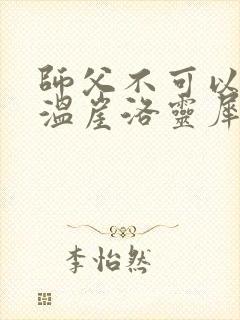 師父不可以
溫崖洛靈犀
李怡然